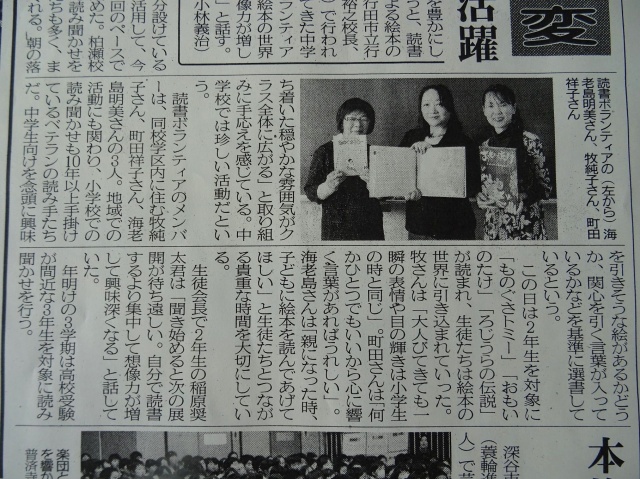 変
活躍
を豊かにし
うと、読書
よる絵本の
行田市立行
裕之校長、
）で行われ
てきた中学
ランティア
絵本の世界
像力が増し
」と話す。
小林義治）
分設けている
活用して、今
回のペースで
めた。柏瀬校
読み聞かせを
ちも多く、ま
れる。朝の落
読書ボランティアの（左から）海
老島明美さん、牧純子さん、町田
祥子さん
ち着いた穏やかな雰囲気がク
ラス全体に広がる」と取り組
みに手応えを感じている。中
学校では珍しい活動だとい
う。
読書ボランティアのメンバ
ーは、同校学区内に住む牧純
子さん、町田祥子さん、海老
島明美さんの3人。地域での
活動にも関わり、小学校での
読み聞かせも10年以上手掛け
ているベテランの読み手たち
だ。中学生向けを念頭に興味
を引きそうな絵があるかどう
か、関心を引く言葉が入って
いるかなどを基準に選書して
いるという。
この日は2年生を対象に
「ものぐさトミー」「おもい
のたけ」「ろじうらの伝説」
が読まれ、生徒たちは絵本の
世界に引き込まれていった。
牧さんは「大人びてきても一
瞬の表情や目の輝きは小学生
の時と同じ」。町田さんは「何
かひとつでもいいから心に響
く言葉があればうれしい」。
海老島さんは「親になった時、
子どもに絵本を読んであげて
ほしい」と生徒たちとつなが
る貴重な時間を大切にしてい
る。
生徒会長で2年生の稲原奨
太君は「聞き始めると次の展
開が待ち遠しい。自分で読書
するより集中して想像力が増
して興味深くなる」と話して
いた。
年明けの3学期は高校受験
が間近な3年生を対象に読み
聞かせを行う。
本
深谷市
（蓑輪進
人）で芸
楽団と
を響か
普済寺